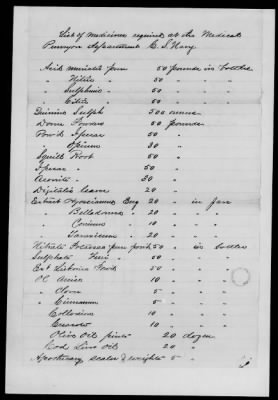 List of medicine required at the Medical
Purveyor Department C. S. Navy
Acid muriatic pure 50 pounds in bottles
" Nitric 50 " "
" Sulphuric 50 " "
" Citric 50 " "
Quinine Sulph 500 ounces
Dover Powders 50 pounds
Powd Ipecac 50 "
" Opium 30 "
Squill Root 50 "
Ipecac " 50 "
Aconite " 30 "
Digitalis leaves 20 "
Extract Hyosciamus Eng 20 " in Jars
" Belladonna " 20 "
" Conium " 10 "
" 20 "
Nitrate Potassa pure 50 " in bottles
Sulphate 50 "
Ext Powd 50 "
Ol Anise 10 "
" Clove 5 "
" Cinnamon 5 "
" 10 "
" 10 "
Olive Oil pints 20 dozen
Cod Liver Oil 20 "
Apothecary scales & weights 5 "